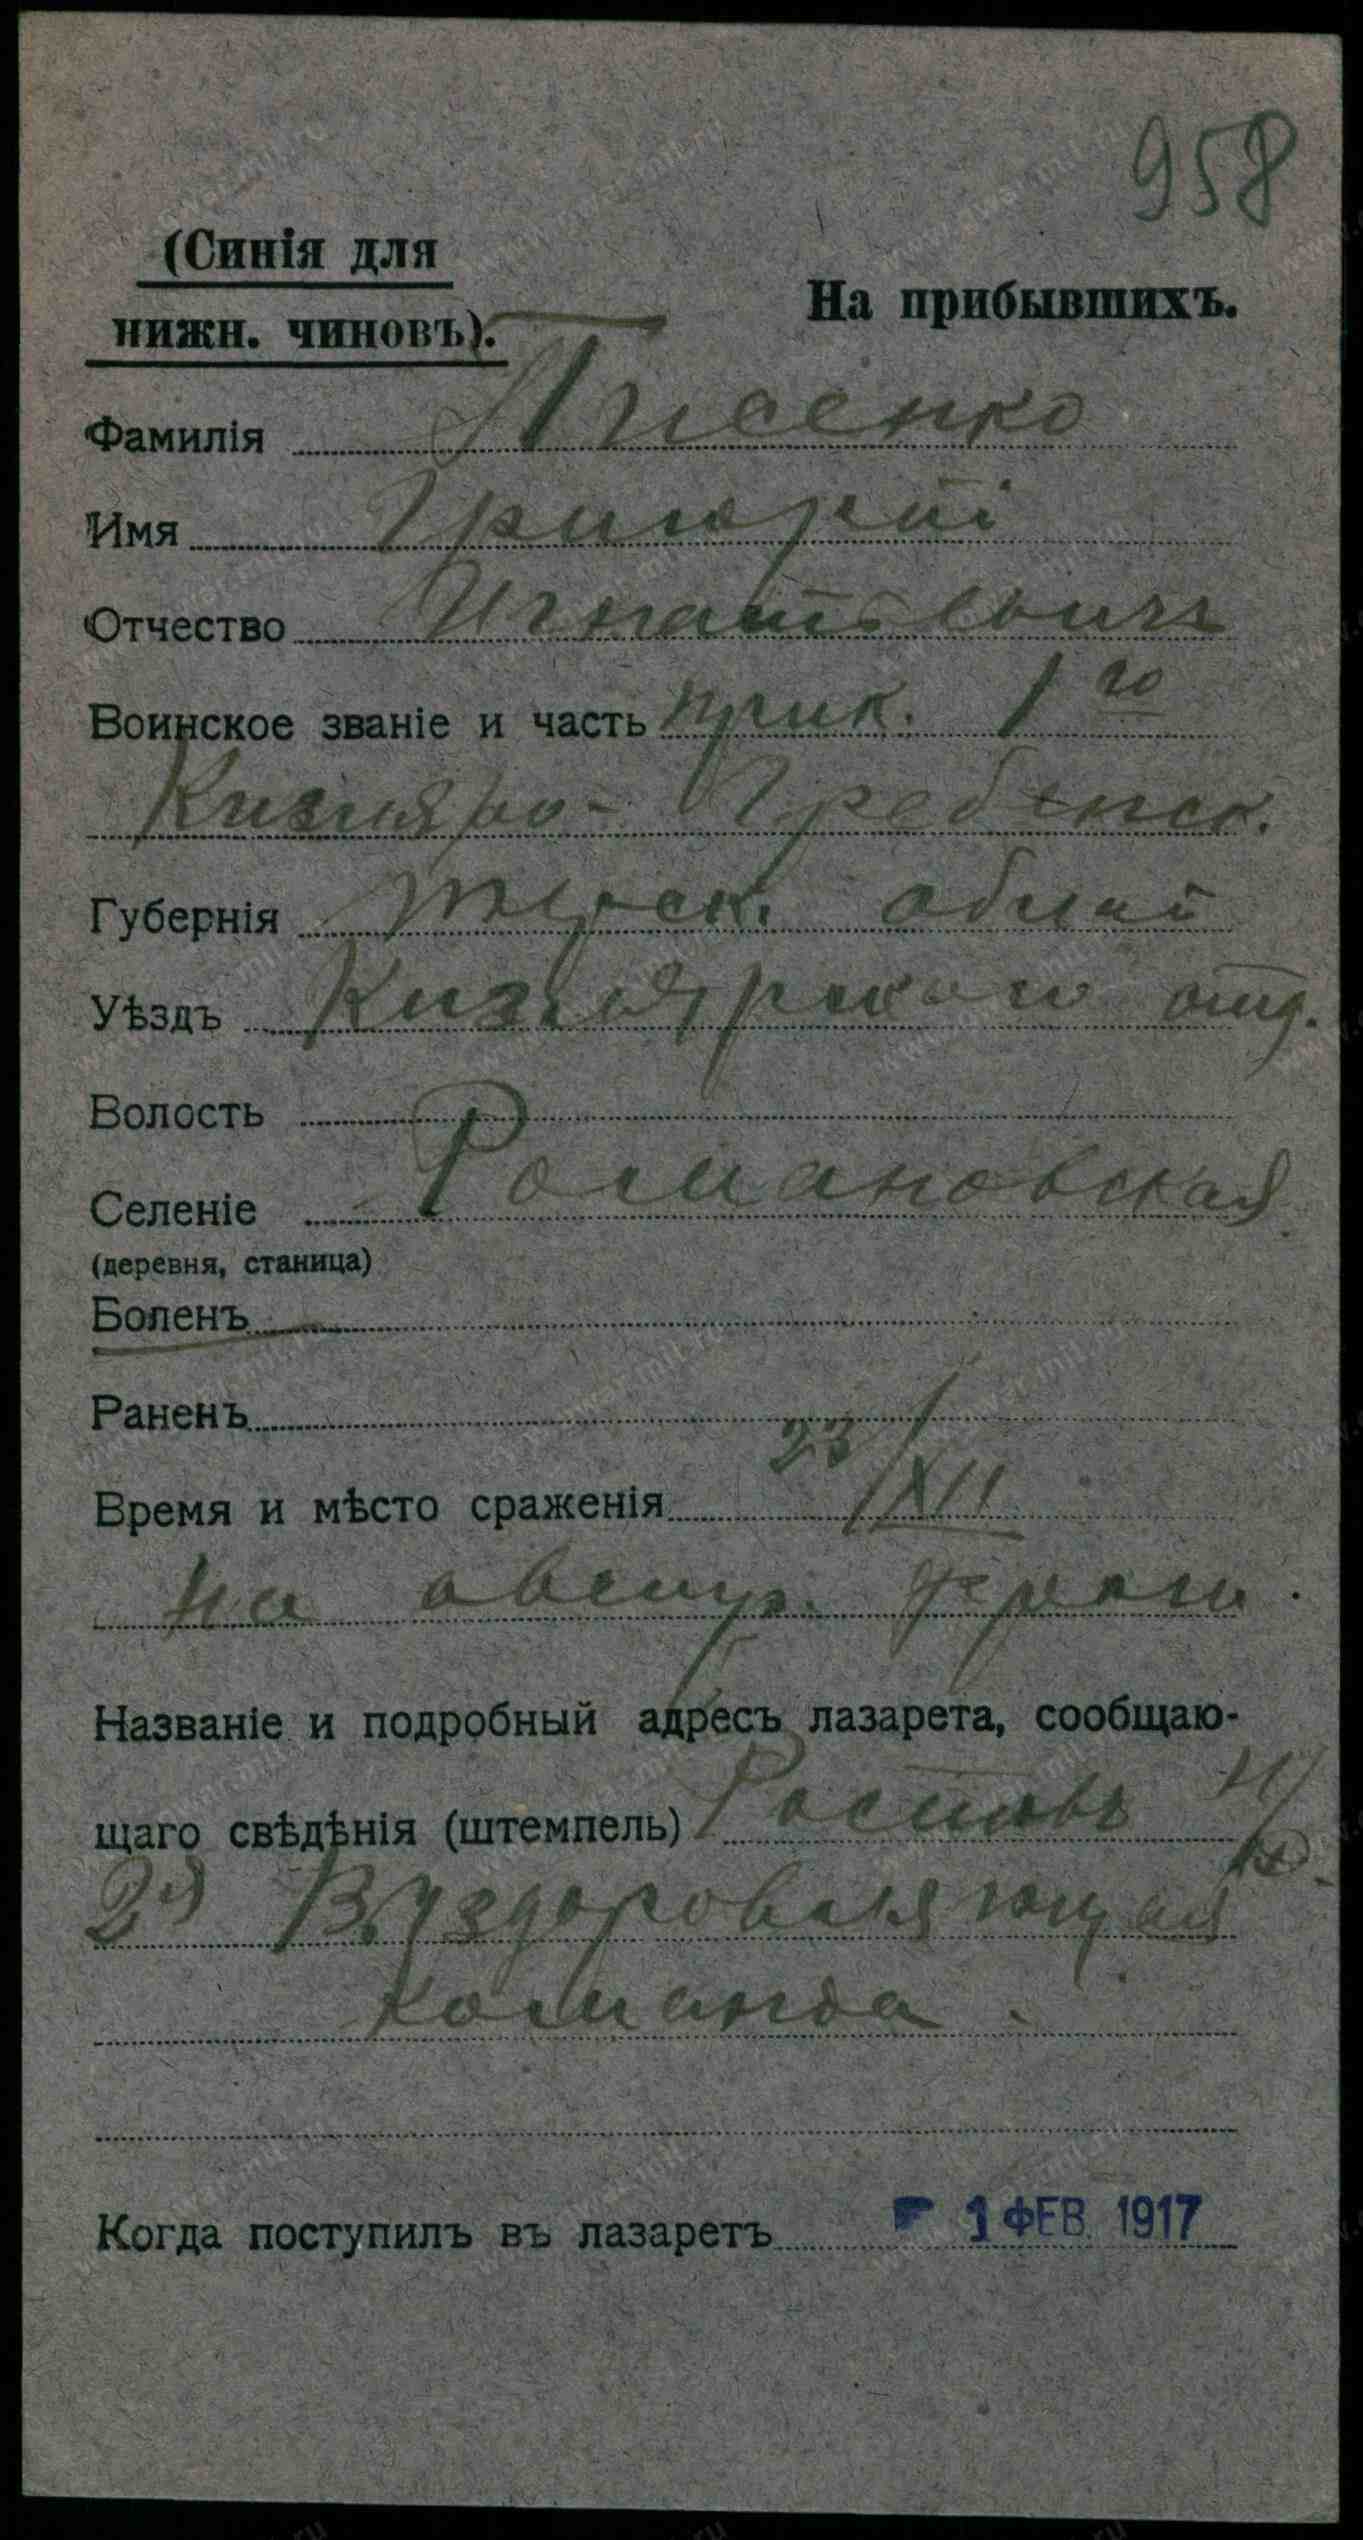 958
(Синія для
нижн. чиновъ).
На прибывшихъ.
Фамилія Писенко
Имя Григорій
Отчество Игнатьевичъ
Воинское званіе и часть прик. 1го
Кизляро-Гребенск.
Губернія Терск. област
Уѣздъ Кизлярского отд.
Волость
Селеніе Романовская
(деревня, станица)
Боленъ
Раненъ
Время и мѣсто сраженія 23/XII
на австр. фрон
Названіе и подробный адресъ лазарета, сообщаю-
щаго свѣдѣнія (штемпель) Ростовъ н/Д.
2я Выздоровляющая
команда.
Когда поступилъ въ лазаретъ 1 ФЕВ. 1917